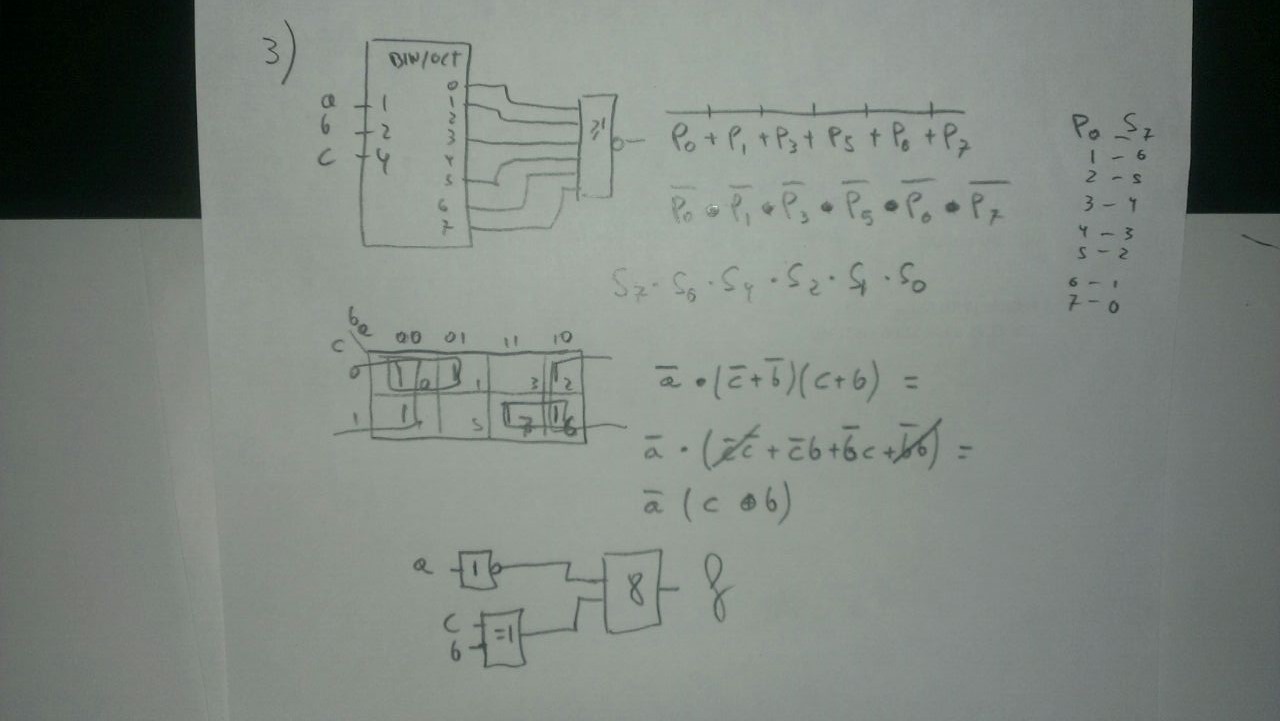 3)
BIN/OCT
a 1
b 2
c 4
0
1
2
3
4
5
6
7
≥1
P0 + P1 + P3 + P5 + P6 + P7
P̅0 • P̅1 • P̅3 • P̅5 • P̅6 • P̅7
S7 · S6 · S4 · S2 · S1 · S0
P0 - S7
1 - 6
2 - 5
3 - 4
4 - 3
5 - 2
6 - 1
7 - 0
ba
c 00 01 11 10
0 1 0 1 1 3 1 2
1 1 5 1 7 1 6
a̅ • (c̅ + b̅)(c + b) =
a̅ · (c̅c + c̅b + b̅c + b̅b) =
a̅ (c ⊕ b)
a 1
c
b =1
& f